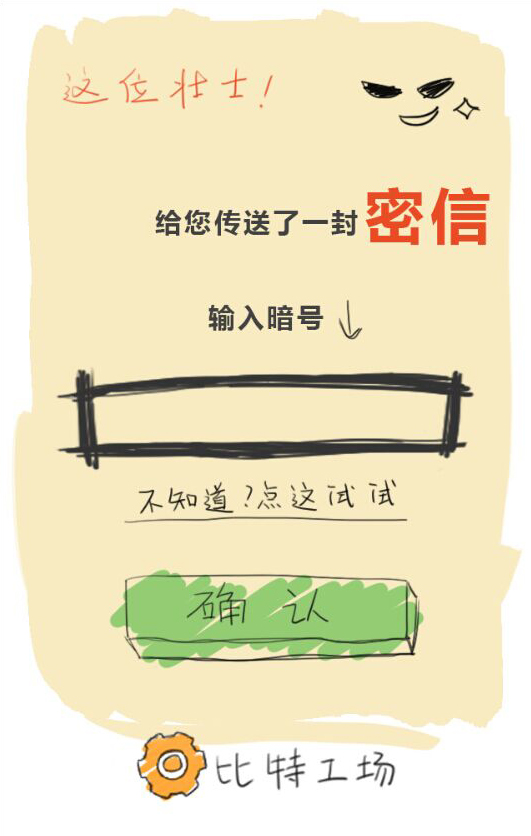 这位壮士!
给您传送了一封密信
输入暗号
不知道?点这试试
确认
比特工场